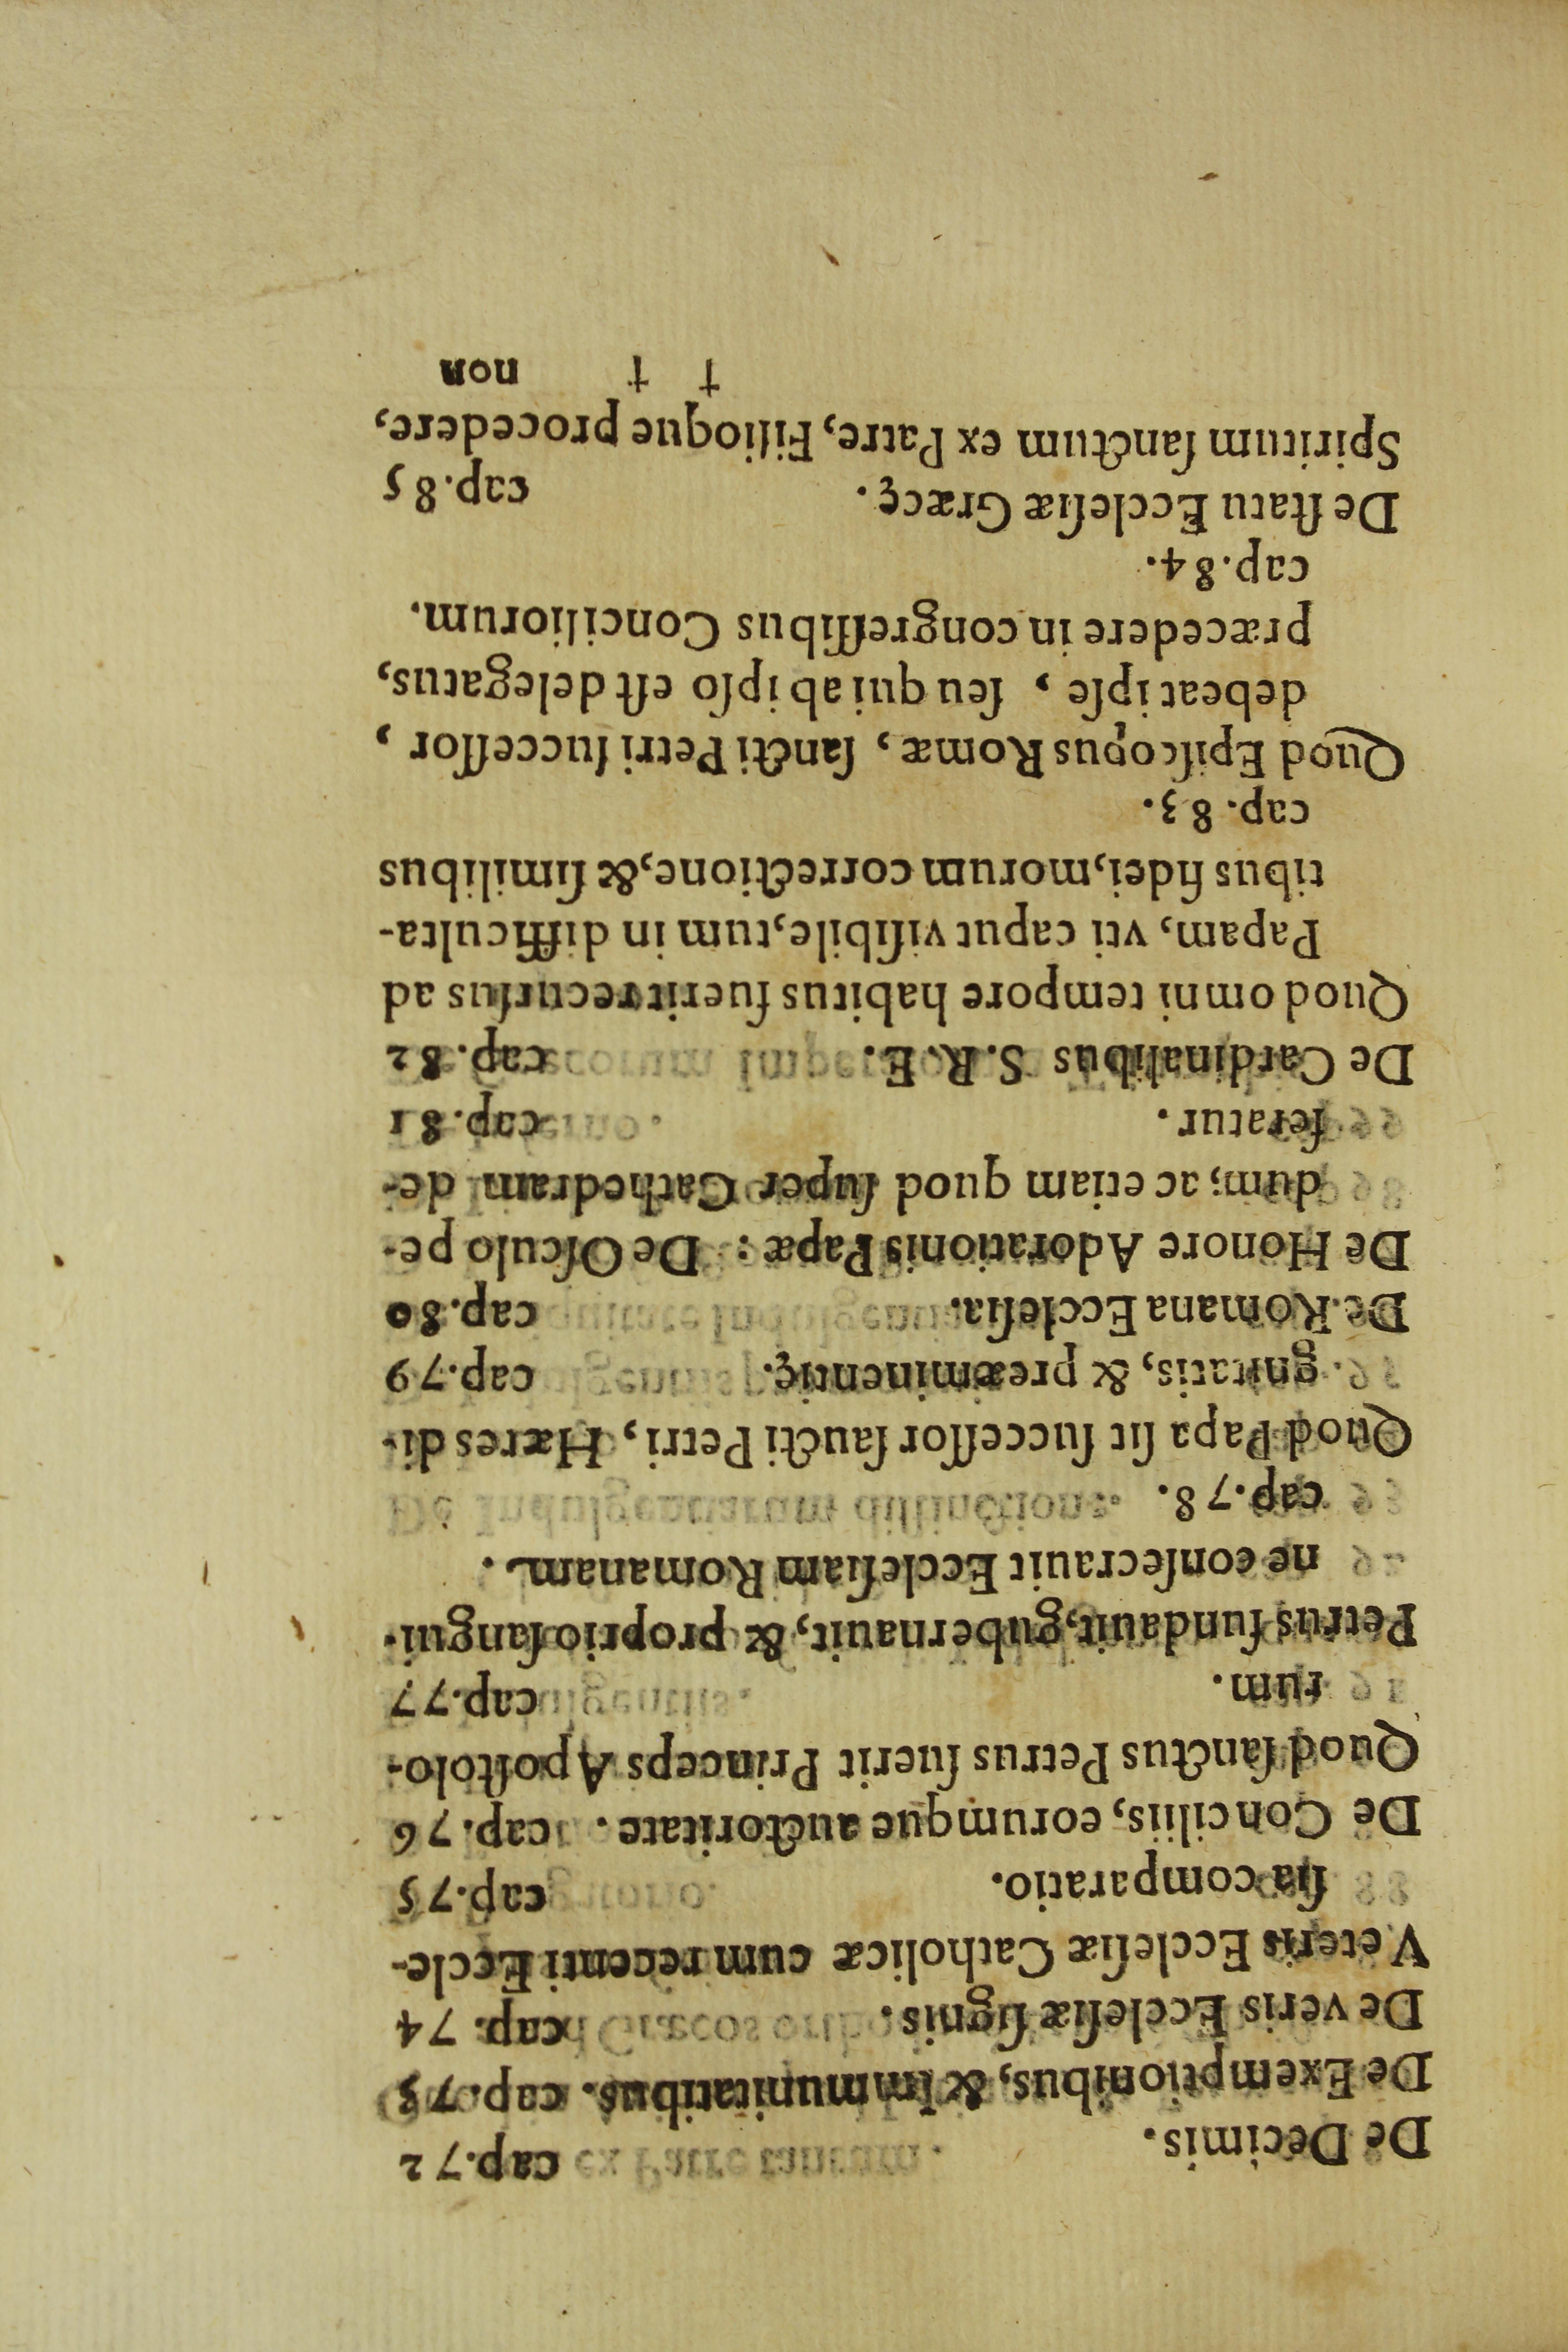 De Decimis. cap. 72
De Exemptionibus, & Immunitatibus. cap. 73
De veris Ecclesiæ signis. cap. 74
Veteris Ecclesiæ Catholicæ cum recenti Eccle-
sia comparatio. cap. 75
De Conciliis, eorumque auctoritate. cap. 76
Quod sanctus Petrus fuerit Princeps Apostolo-
rum. cap. 77
Petrus fundauit, gubernauit, & proprio sangui-
ne consecrauit Ecclesiam Romanam.
cap. 78.
Quod Papa sit successor saucti Petri, Hæres di-
gnitatis, & preæminentię. cap. 79
De Romana Ecclesia. cap. 80
De Honore Adorationis Papæ: De Osculo pe-
dum; ac etiam quod super Cathedram de-
feratur. cap. 81
De Cardinalibus S. R. E. cap. 82
Quod omni tempore habitus fuerit recursus ad
Papam, vti caput visibile, tum in difficulta-
tibus fidei, morum correctione, & similibus
cap. 83.
Quod Episcopus Romæ, sancti Petri successor,
debeat ipse, seu qui ab ipso est delegatus,
præcedere in congressibus Conciliorum.
cap. 84.
De statu Ecclesiæ Græcę. cap. 85
Spiritum sanctum ex Patre, Filioque procedere,
† † non